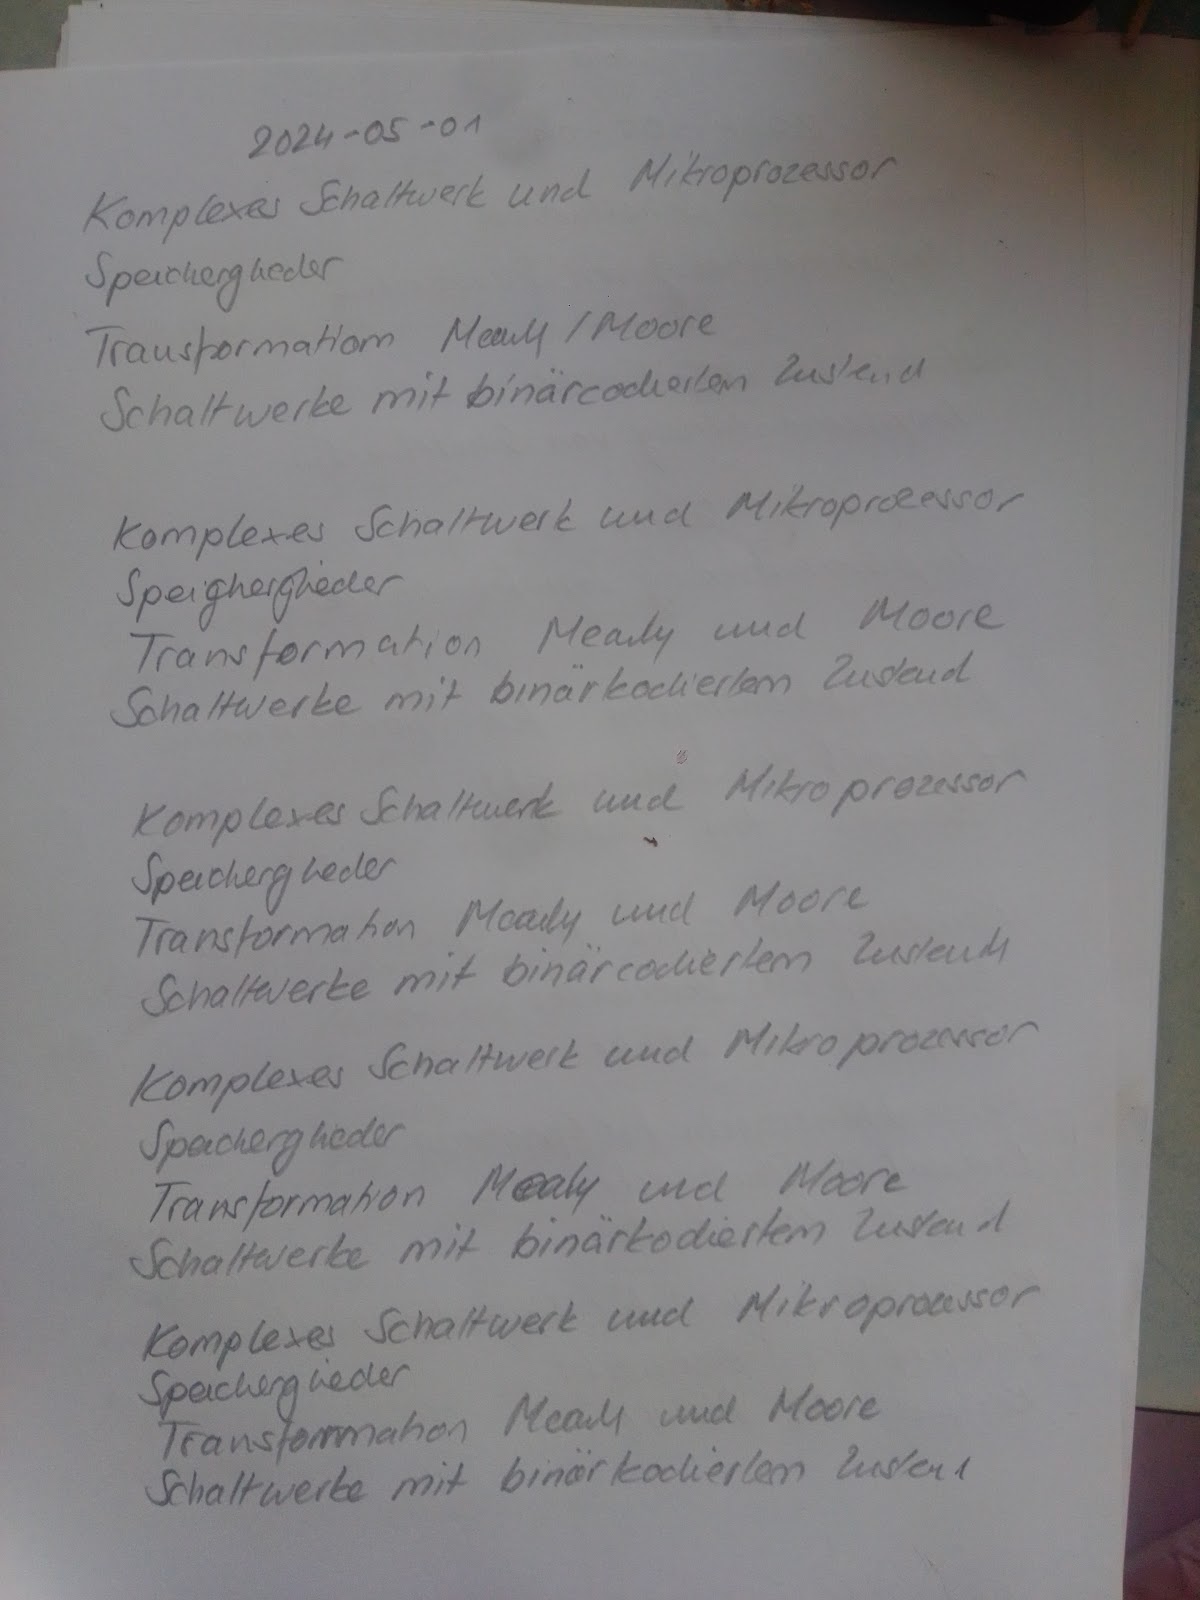 2024-05-01
Komplexes Schaltwerk und Mikroprozessor
Speicherglieder
Transformation Mealy / Moore
Schaltwerke mit binärcodiertem Zustand
Komplexes Schaltwerk und Mikroprozessor
Speigherglieder
Transformation Mealy und Moore
Schaltwerke mit binärkodiertem Zustand
Komplexes Schaltwerk und Mikroprozessor
Speicherglieder
Transformation Mealy und Moore
Schaltwerke mit binärcodiertem Zustand
Komplexes Schaltwerk und Mikroprozessor
Speicherglieder
Transformation Mealy und Moore
Schaltwerke mit binärkodiertem Zustand
Komplexes Schaltwerk und Mikroprozessor
Speicherglieder
Transformation Mealy und Moore
Schaltwerke mit binärkodiertem Zustand